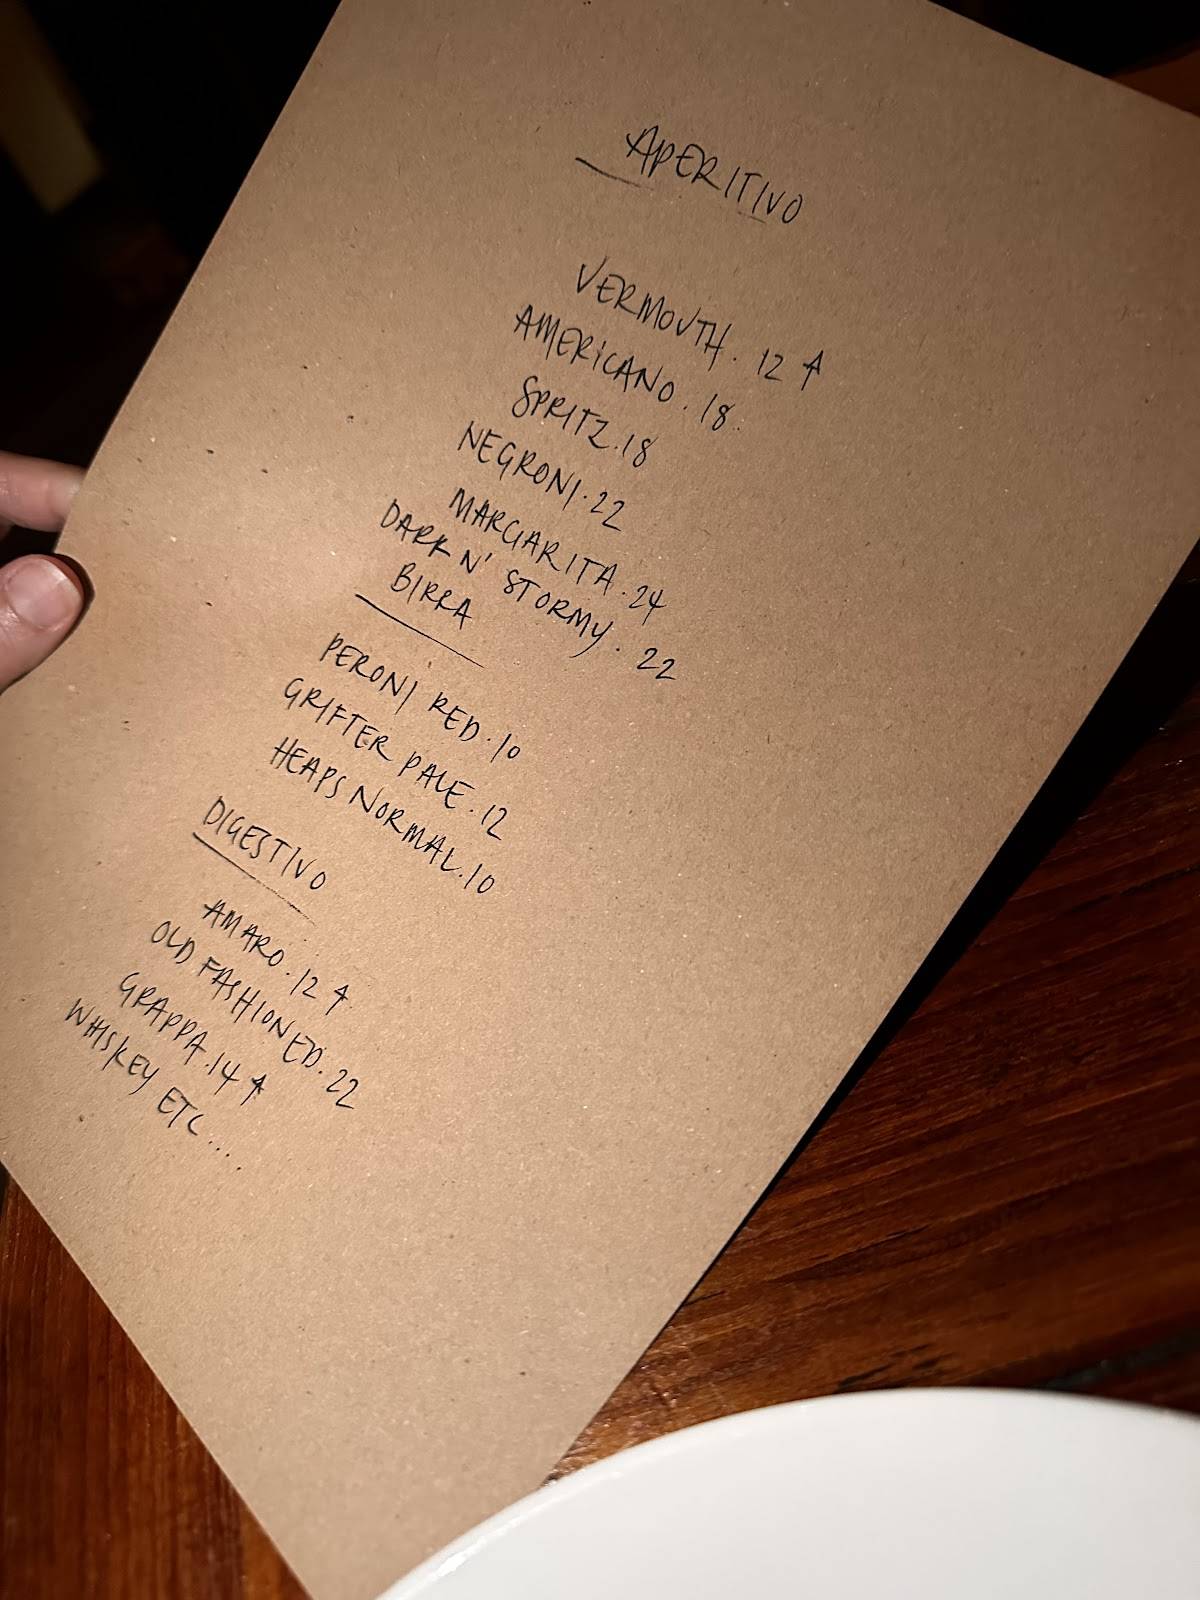 APERITIVO
VERMOUTH. 12 ↑
AMERICANO. 18
SPRITZ. 18
NEGRONI. 22
MARGARITA. 24
DARK N' STORMY. 22
BIRRA
PERONI RED. 10
GRIFTER PALE. 12
HEAPS NORMAL. 10
DIGESTIVO
AMARO. 12 ↑
OLD FASHIONED. 22
GRAPPA. 14 ↑
WHISKEY ETC....